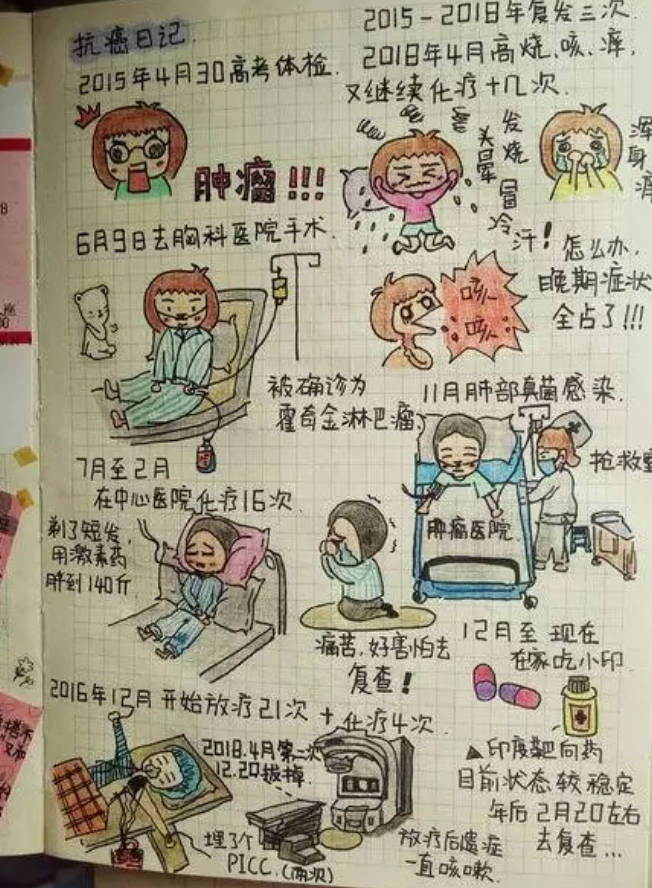 抗癌日记.
2015年4月30高考体检.
肿瘤!!!
6月9日去胸科医院手术.
被确诊为
霍奇金淋巴瘤
7月至2月
在中心医院化疗16次.
剃了短发,
用激素药
胖到140斤.
痛苦,好害怕去
复查!
2016年12月 开始放疗21次 + 化疗4次.
2018.4月第二次
12.20拔掉.
埋了个
PICC.(两次)
放疗后遗症
一直咳嗽.
2015-2018年复发三次.
2018年4月高烧、咳、痒,
又继续化疗十几次.
发烧
头晕
冒冷汗!
浑身痛
咳
咳
怎么办,
晚期症状
全占了!!!
11月肺部真菌感染.
抢救室
肿瘤医院.
12月至 现在
在家吃小印.
▲印度靶向药
目前状态较稳定
年后 2月20左右
去复查...